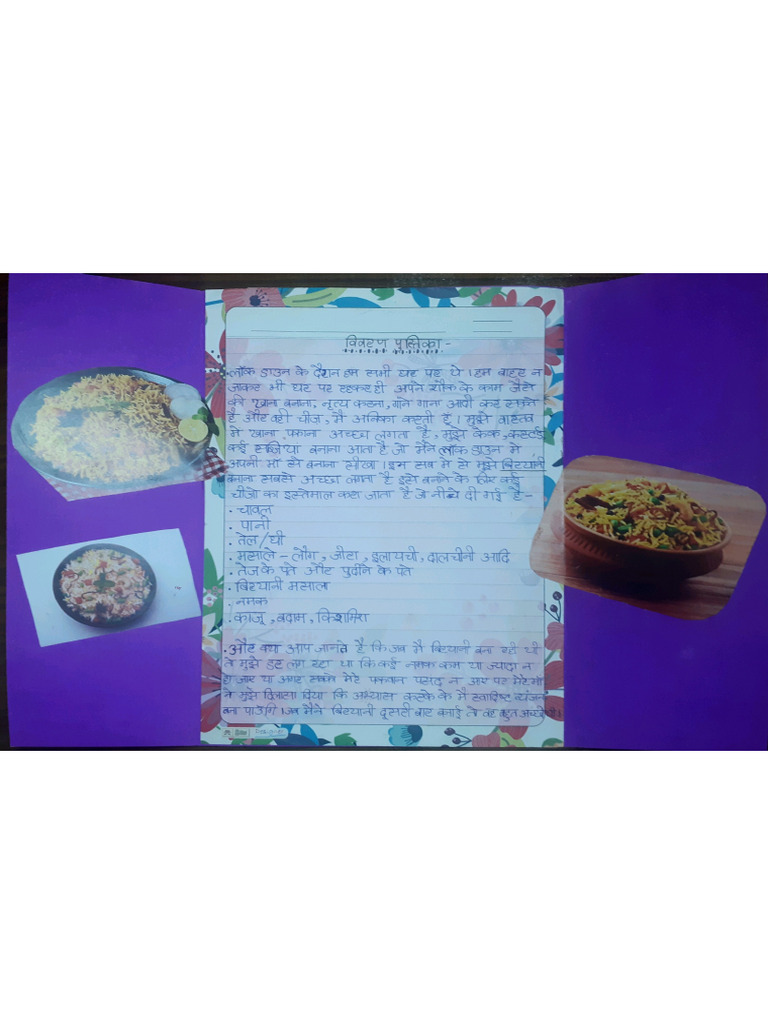 विवरण पुस्तिका -
लॉक डाउन के दौरान हम सभी घर पर थे। हम बाहर न
जाकर भी घर पर रहकर ही अपने शौक के काम जैसे
की खाना बनाना, नृत्य करना, गाने गाना आदी कर सकते
है और वही चीज, मै अनिका करती हूँ। मुझे वास्तव
मे खाना पकाना अच्छा लगता है, मुझे केक, कस्टर्ड
कई सब्जिया बनाना आता है जो मैने लॉक डाउन मे
अपनी माँ से बनाना सीखा। इन सब मे से मुझे बिरयानी
बनाना सबसे अच्छा लगता है इसे बनाने के लिए कई
चीजो का इस्तेमाल करा जाता है जो नीचे दी गई है -
· चावल
· पानी
· तेल/घी
· मसाले - लौंग, जीरा, इलायची, दालचीनी आदि
· तेज के पत्ते और पुदीने के पत्ते
· बिरयानी मसाला
· नमक
· काजू, बदाम, किशमिश
· और क्या आप जानते है कि जब मै बिरयानी बना रही थी
तो मुझे डर लग रहा था कि कई नमक कम या ज्यादा न
हो जाए या अगर सबको मेरे पकवान पसंद न आए पर मेरी माँ
ने मुझे दिलासा दिया कि अभ्यास करके के मै स्वादिष्ट व्यंजन
बना पाऊँगी। जब मैने बिरयानी दूसरी बार बनाई तो वह बहुत अच्छी थी।